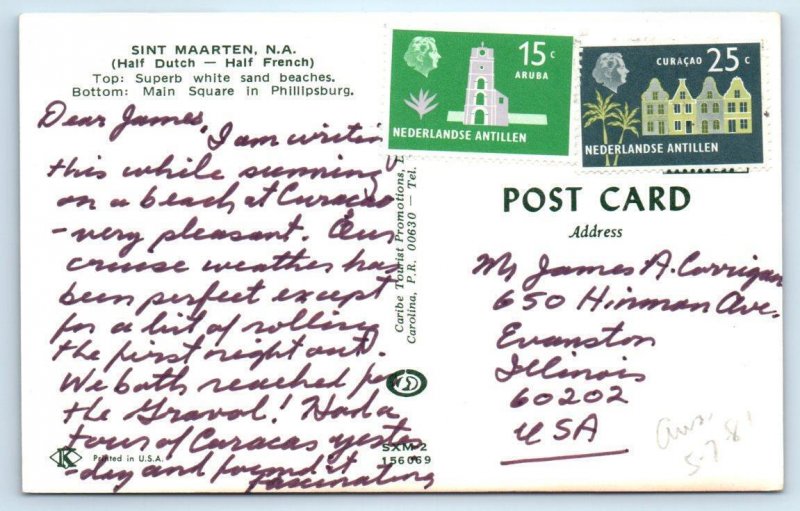 SINT MAARTEN, N.A.
(Half Dutch — Half French)
Top: Superb white sand beaches.
Bottom: Main Square in Phillipsburg.
Dear James,
I am writing
this while sunning
on a beach at Curacao
- very pleasant. Our
cruise weather has
been perfect except
for a bit of rolling
the first night out.
We both reached for
the Graval! Had a
tour of Caracas yester
-day and found it
fascinating
Printed in U.S.A.
SXM-2
156069
Caribe Tourist Promotions,
Carolina, P.R. 00630 - Tel.
15c
ARUBA
NEDERLANDSE ANTILLEN
CURAÇAO 25c
NEDERLANDSE ANTILLEN
POST CARD
Address
Mr James A. Corrigan
650 Hinman Ave.
Evanston
Illinois
60202
USA
Ans.
5-7-81